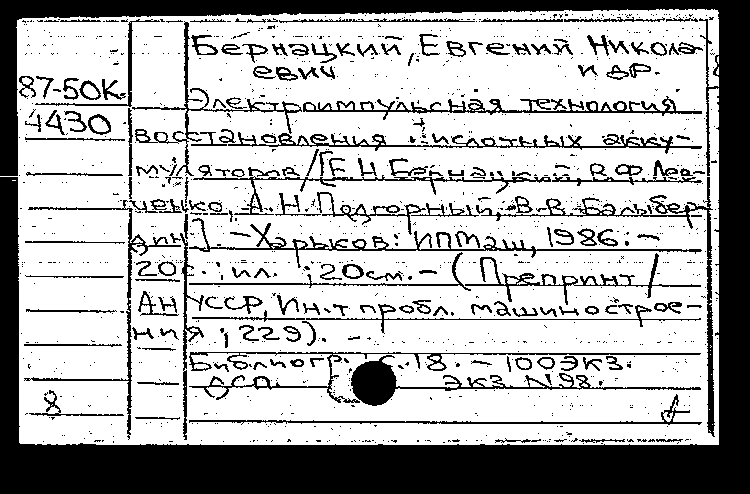 Бернацкий, Евгений Никола-
евич и др.
87-50К.
4430
Электроимпульсная технология
восстановления кислотных акку-
муляторов/[Е.Н.Бернацкий, В.Ф.Лев-
ченко, А.Н.Подгорный, В.В.Балыбер-
дин]. - Харьков: ИПМаш, 1986. -
20с.; ил. ; 20см. - (Препринт /
АН УССР, Ин-т пробл. машинострое-
ния ; 229). -
Библиогр.: с.18. - 100 экз.
ДСП. экз. N98.
8